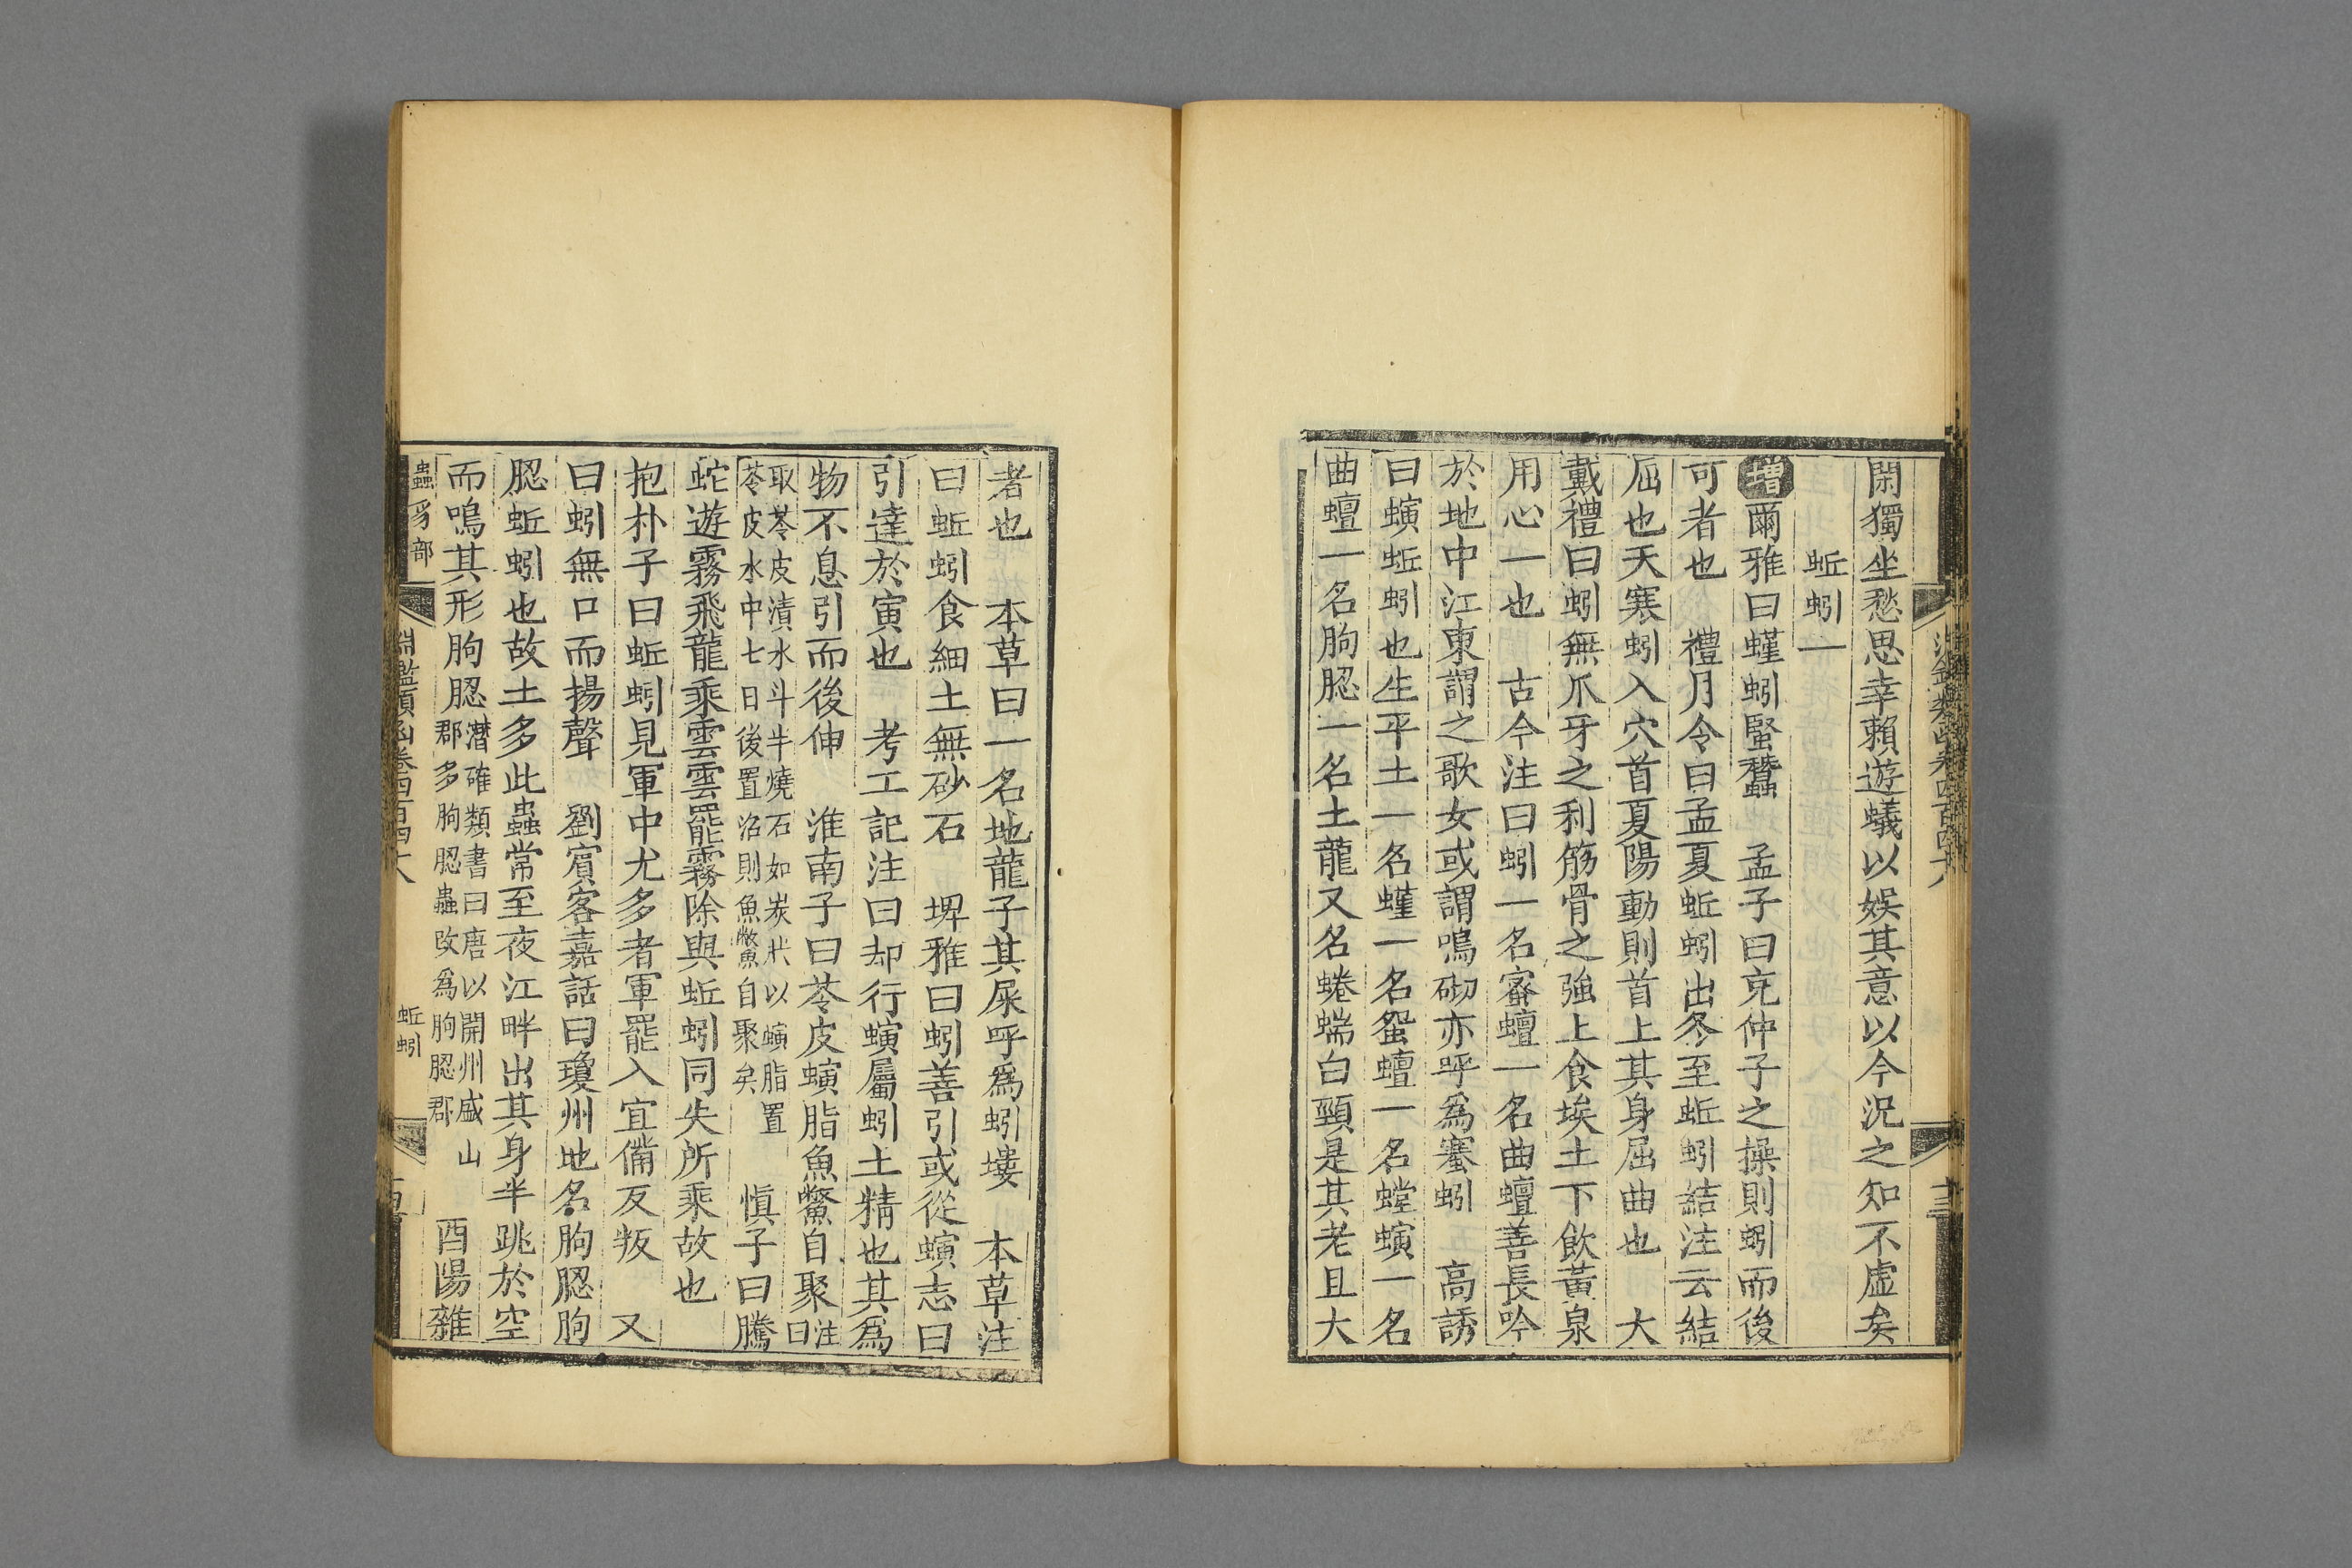 閑獨坐愁思幸賴遊蟻以娛其意以今況之知不虛矣
蚯蚓一
增爾雅曰螼蚓蜸蠶　孟子曰充仲子之操則蚓而後
可者也　禮月令曰孟夏蚯蚓出冬至蚯蚓結注云結
屈也天寒蚓入穴首夏陽動則首上其身屈曲也　大
戴禮曰蚓無爪牙之利筋骨之強上食埃土下飲黃泉
用心一也　古今注曰蚓一名蜜蟺一名曲蟺善長吟
於地中江東謂之歌女或謂鳴砌亦呼為蹇蚓　高誘
曰螾蚯蚓也生平土一名螼一名蜑蟺一名螳螾一名
曲蟺一名朐䏰一名土龍又名蜷蝺白頸是其老且大
者也　本草曰一名地龍子其屎呼爲蚓塿　本草注
曰蚯蚓食細土無砂石　埤雅曰蚓善引或從螾志曰
引達於寅也　考工記注曰却行螾屬蚓土精也其爲
物不息引而後伸　淮南子曰苓皮螾脂魚鱉自聚注曰
取苓皮漬水斗半燒石如炭狀以螾脂置
苓皮水中七日後置沼則魚鱉自聚矣　慎子曰騰
蛇遊霧飛龍乘雲雲罷霧除與蚯蚓同失所乘故也
抱朴子曰蚯蚓見軍中尤多者軍罷入宜備反叛　又
曰蚓無口而揚聲　劉賓客嘉話曰瓊州地名朐䏰朐
䏰蚯蚓也故土多此蟲常至夜江畔出其身半跳於空
而鳴其形朐䏰潛確類書曰唐以開州盛山
郡多朐䏰蟲改爲朐䏰郡　酉陽雜
蟲豸部
淵鑑類函卷四百四十八
蚯蚓